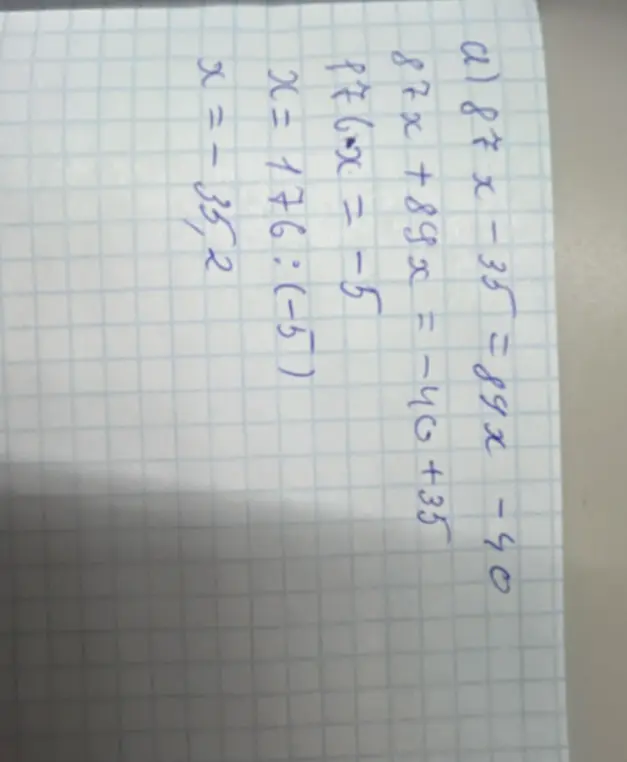 а) 87x - 35 = 89x - 40
87x + 89x = -40 + 35
176x = -5
x = 176 : (-5)
x = - 35,2